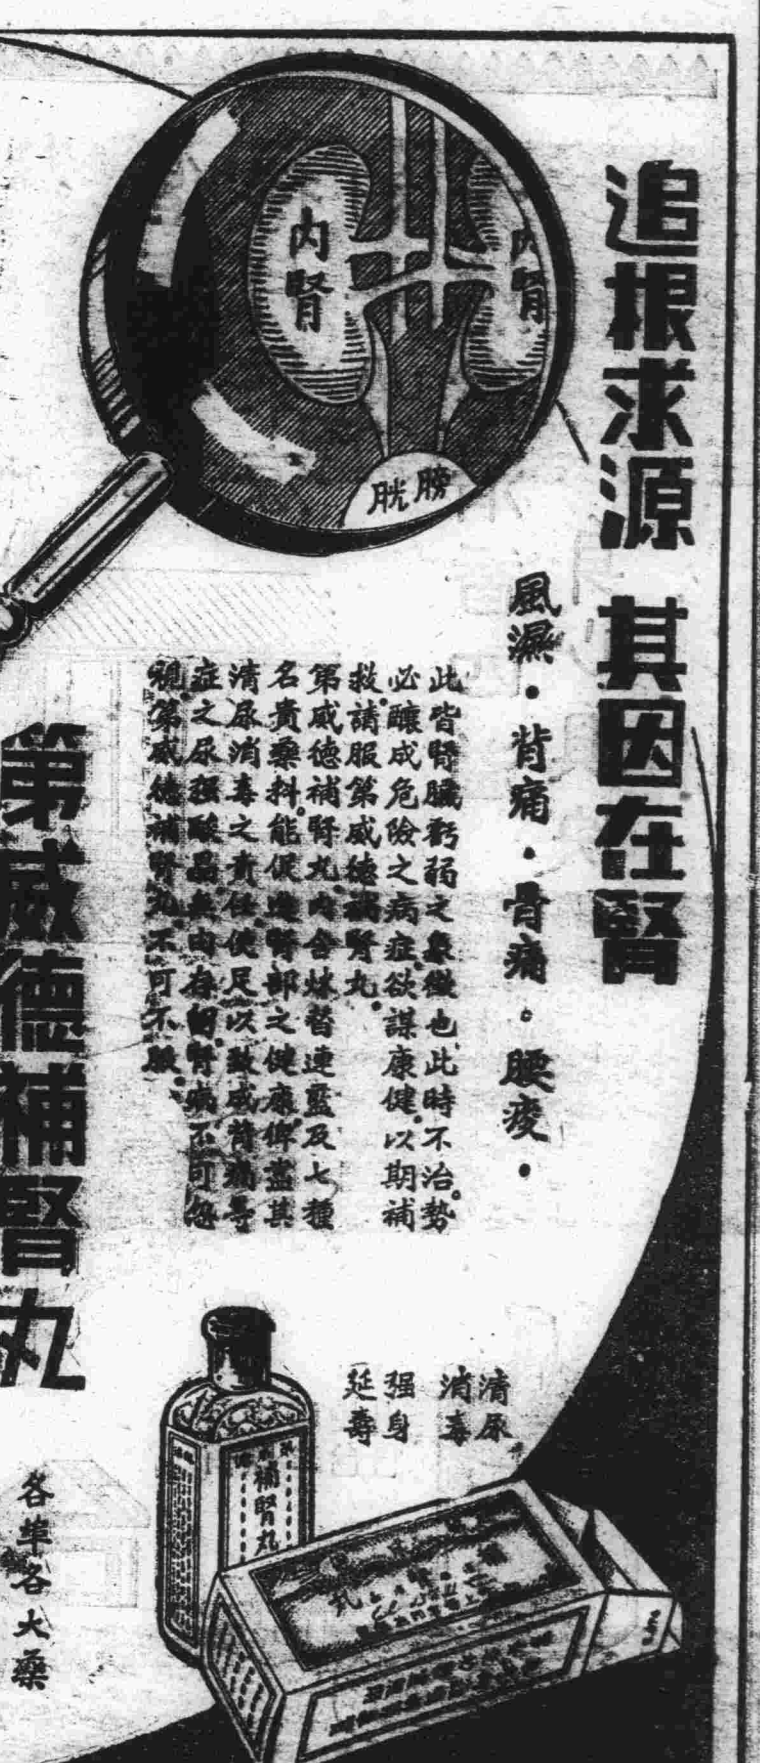 追根求源 其因在腎
內腎
內腎
膀胱
風濕．背痛．骨痛。腰痠．
此皆腎臟虧弱之象徵也此時不治。勢
必釀成危險之病症。欲謀康健。以期補
救。請服第威德補腎丸。
第威德補腎丸。內含妹替連藍及七種
名貴藥料。能促進腎部之健康。俾盡其
清尿消毒之責任。使足以致成背痛等
症之尿强酸晶無由存留。腎病不可忽
視。第威德補腎丸。不可不服。
第威德補腎丸
清尿
消毒
强身
延壽
補腎丸
各埠各大藥